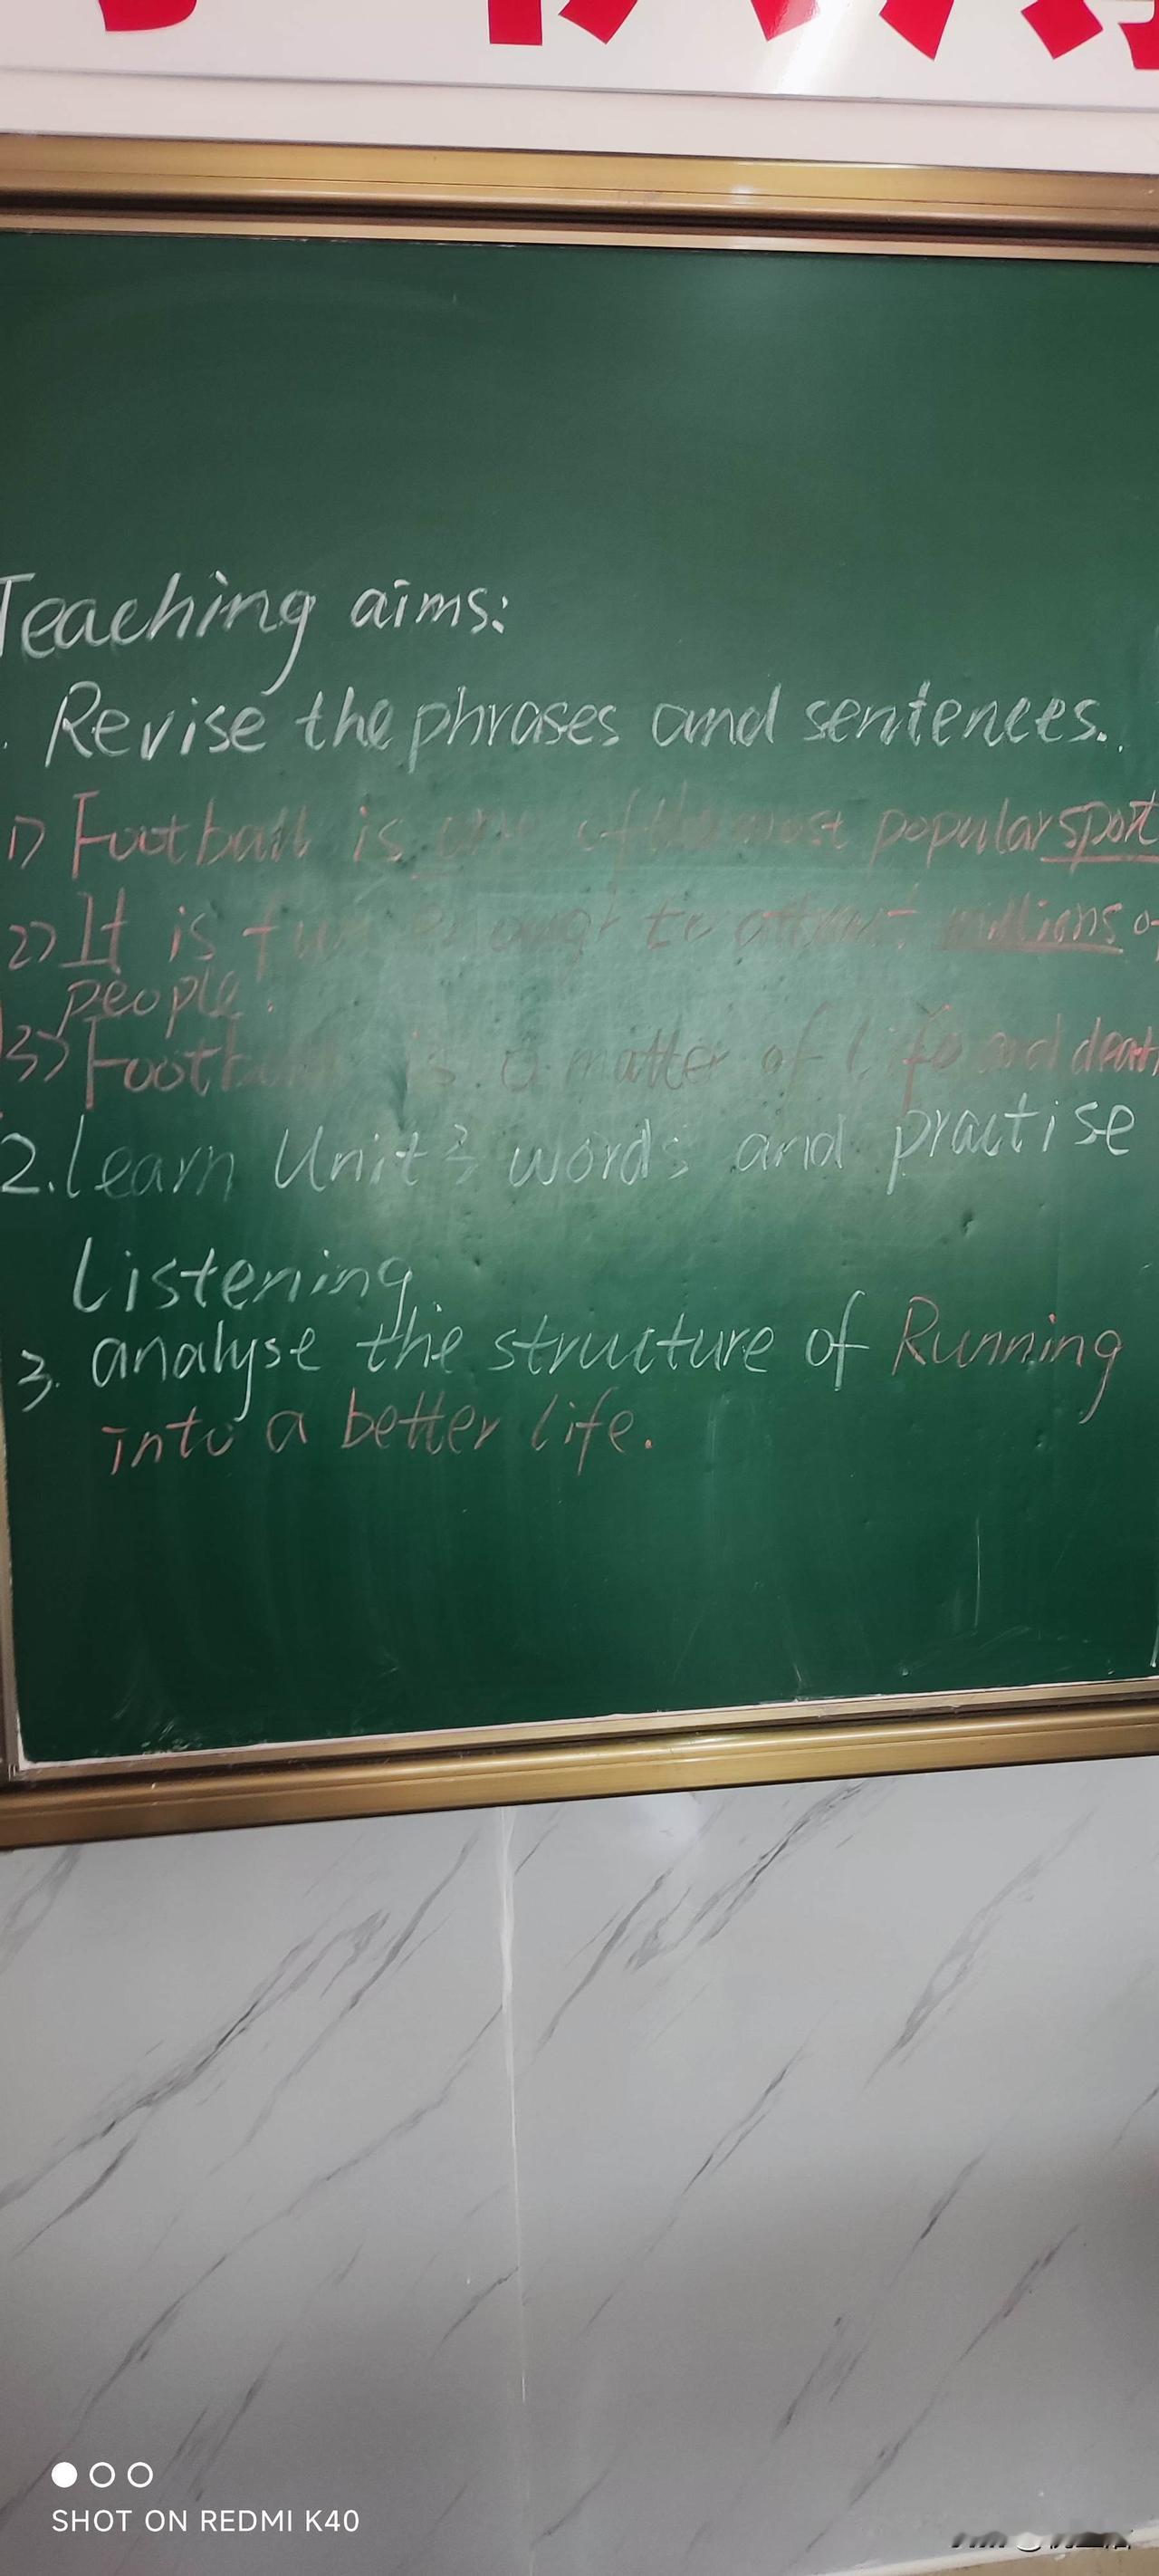 Teaching aims:
. Revise the phrases and sentences.
1) Football is one of the most popular sport
2) It is fun enough to attract millions of
people.
3) Football is a matter of life and death
2. learn Unit 3 words and practise
listening
3. analyse the structure of Running
into a better life.
SHOT ON REDMI K40